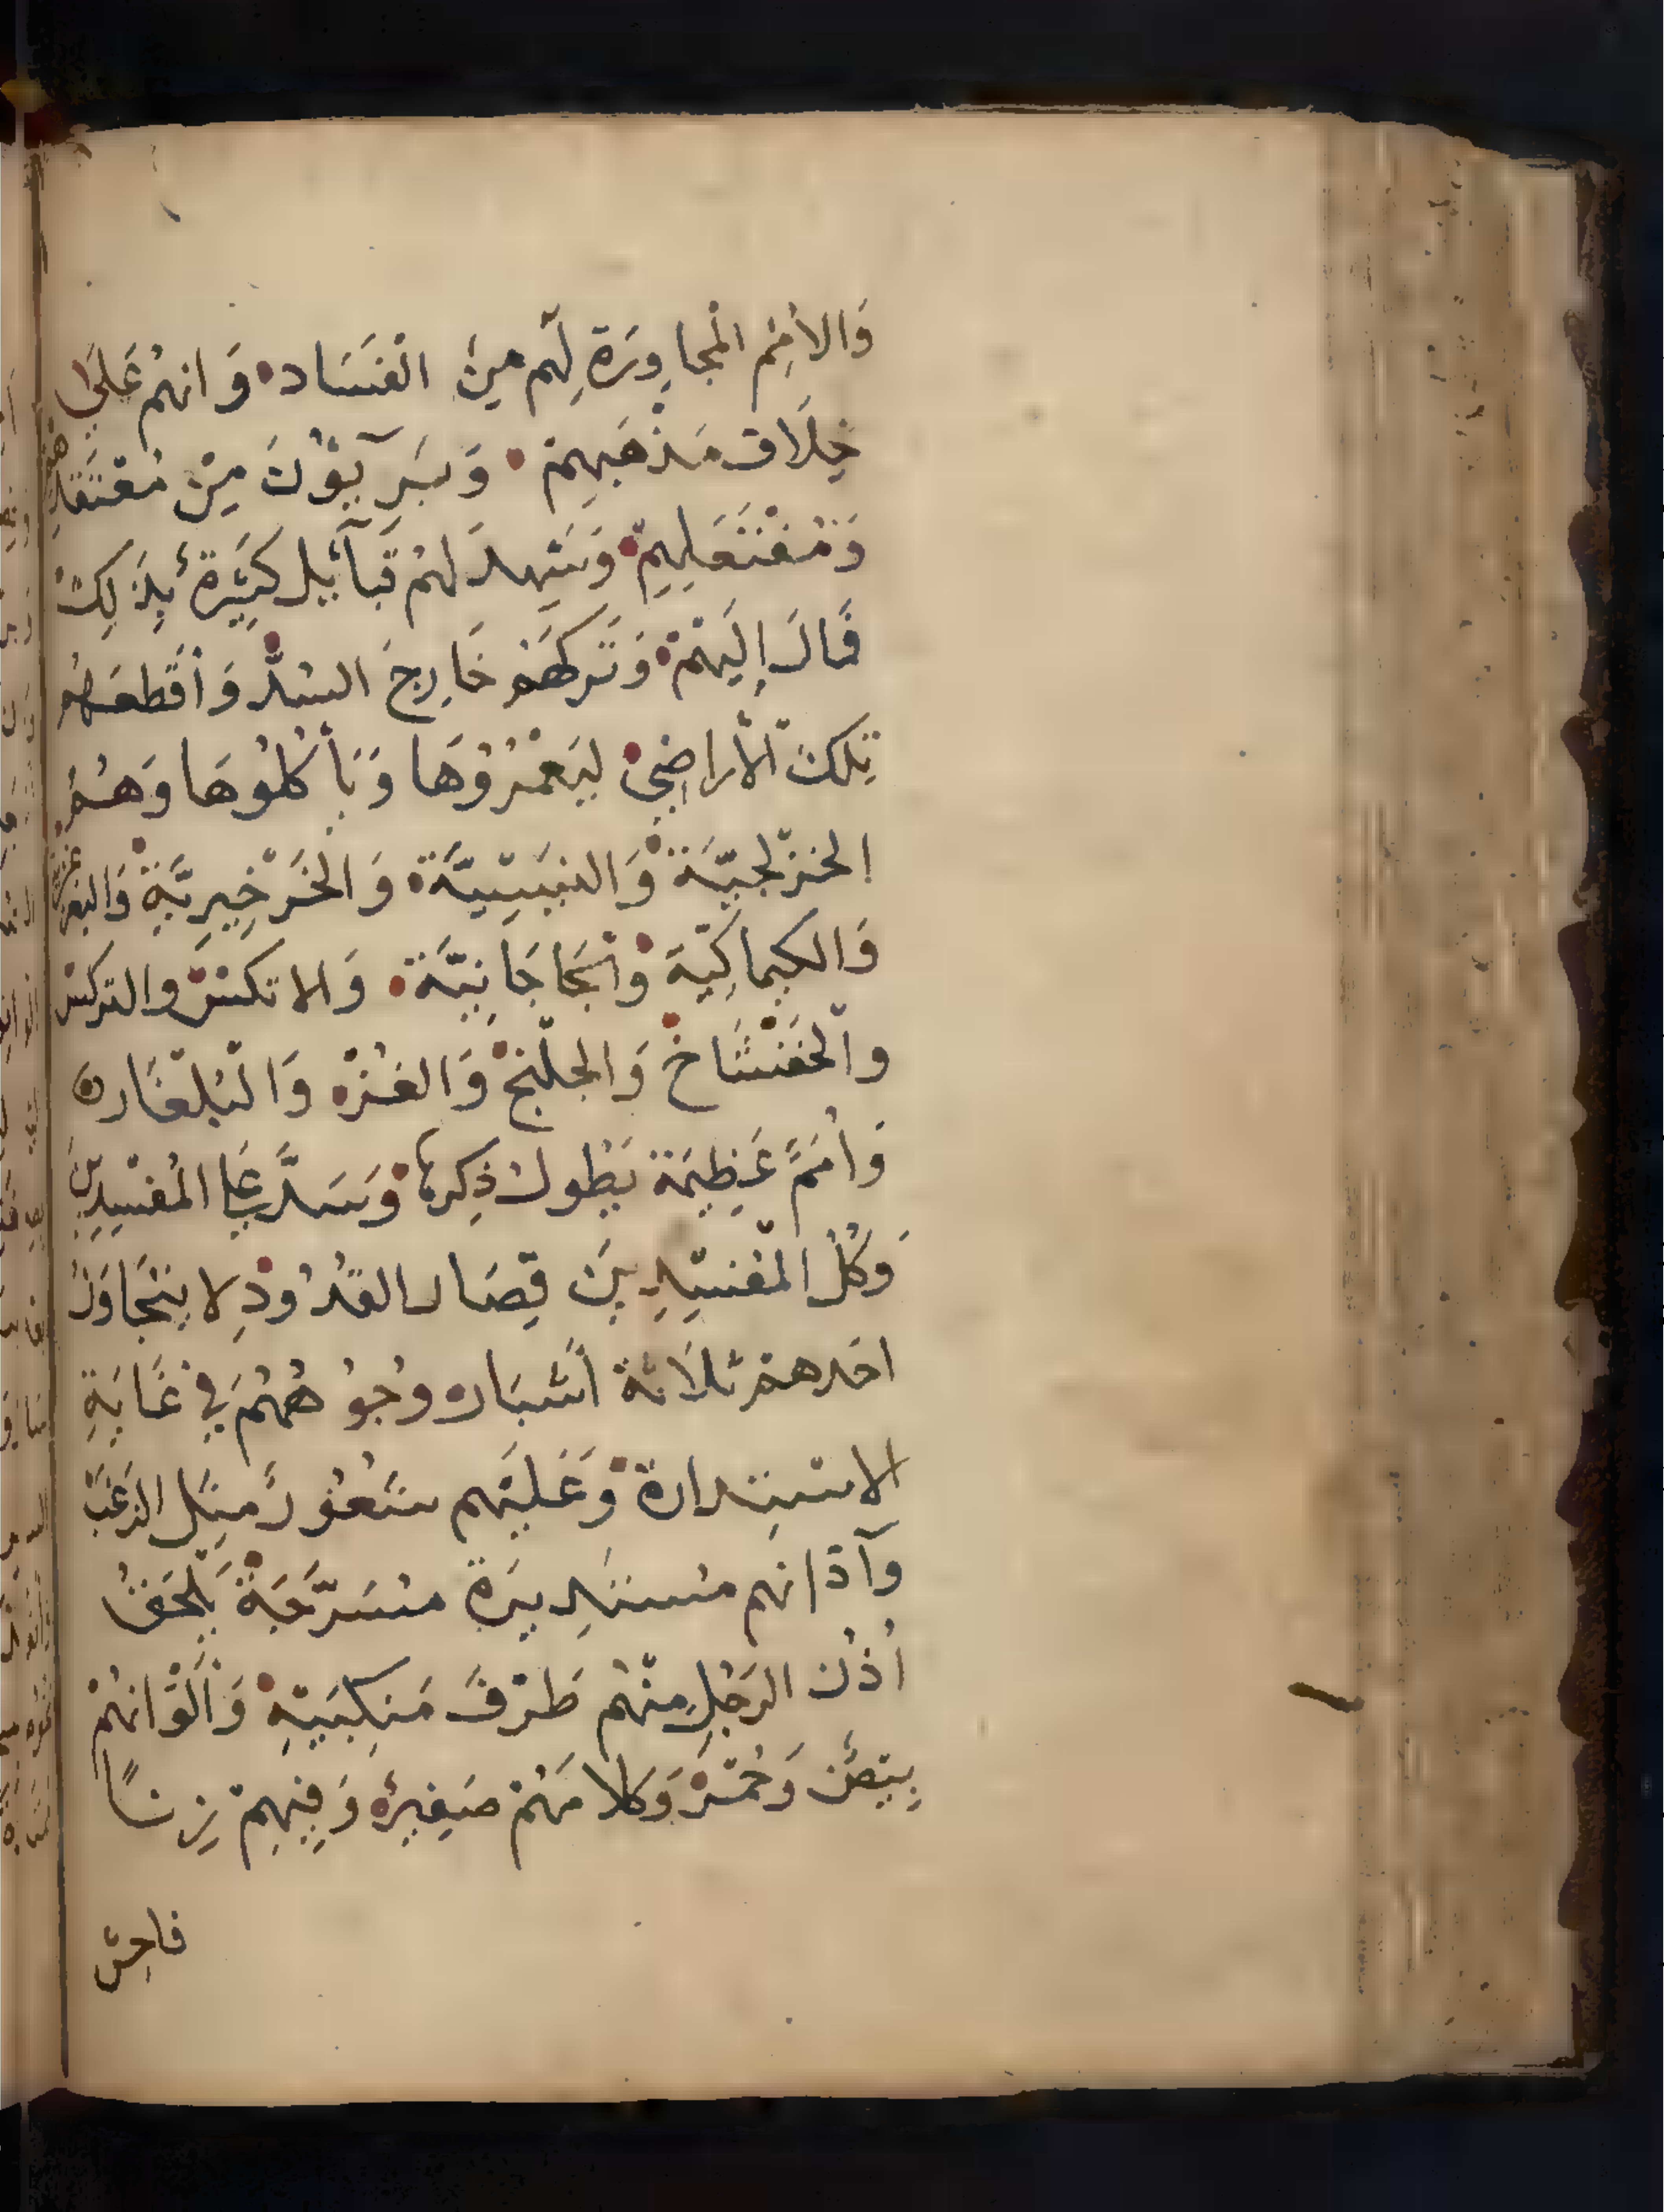 وَالأُمَمِ الْمُجَاوِرَةِ لَهُم مِنَ الْفَسَادِ وَانهُمْ عَلَى
خِلَافِ مَذْهَبِهِمْ وَيَبْرَؤُنَ مِنْ مُعْتَقَدِهِمْ
وَمُفْتَعَلِهِمْ وَشَهِدَ لَهُمْ قَبَآئِل كَثِيرَةٌ بِذَلِكَ
فَمَالَ إِلَيْهِمْ وَتَرَكَهُمْ خَارِجَ السَّدِّ وَأَقْطَعَهُمْ
تِلْكَ الْأَرَاضِيَ لِيَعْمُرُوْهَا وَيَأْكُلُوهَا وَهُمُ
الخزلجيَّة وَالتبتيَّة وَالْخَرْخِيرِيَّة وَالتغزغزية
وَالكيماكيّة وَالجاجانيَّة وَالاتكش والتركش
والْخفشاخ وَالخلْنج وَالغُزّ وَالْبُلْغَار
وَأُمَمٌ عَظِيمَة يَطُولُ ذِكرها وَسَدَّ عَلى الْمُفْسِدِينَ
وَكُلُّ الْمُفْسِدِينَ قِصَار الْقُدُودِ لا يَتَجَاوَزُ
احدهمْ ثَلَاثَةَ أَشْبَار وُجُوهُهُمْ فِي غَايَةِ
الاسْتِدَارَةِ وَعَلَيْهِم شُعُورٌ مِثل الزَّغَبِ
وَآذانهم مُسْتَدِيرَة مُسْتَرْخِيَة يَلْحَقُ
أُذُنُ الرَّجُلِ مِنْهُم طَرْفَ مَنْكِبَيْهِ وَأَلْوَانُهُمْ
بِيضٌ وَحُمْرٌ وَكَلَامَهُمْ صَفِيرٌ وَفِيهِمْ زِنًا
فاحِش